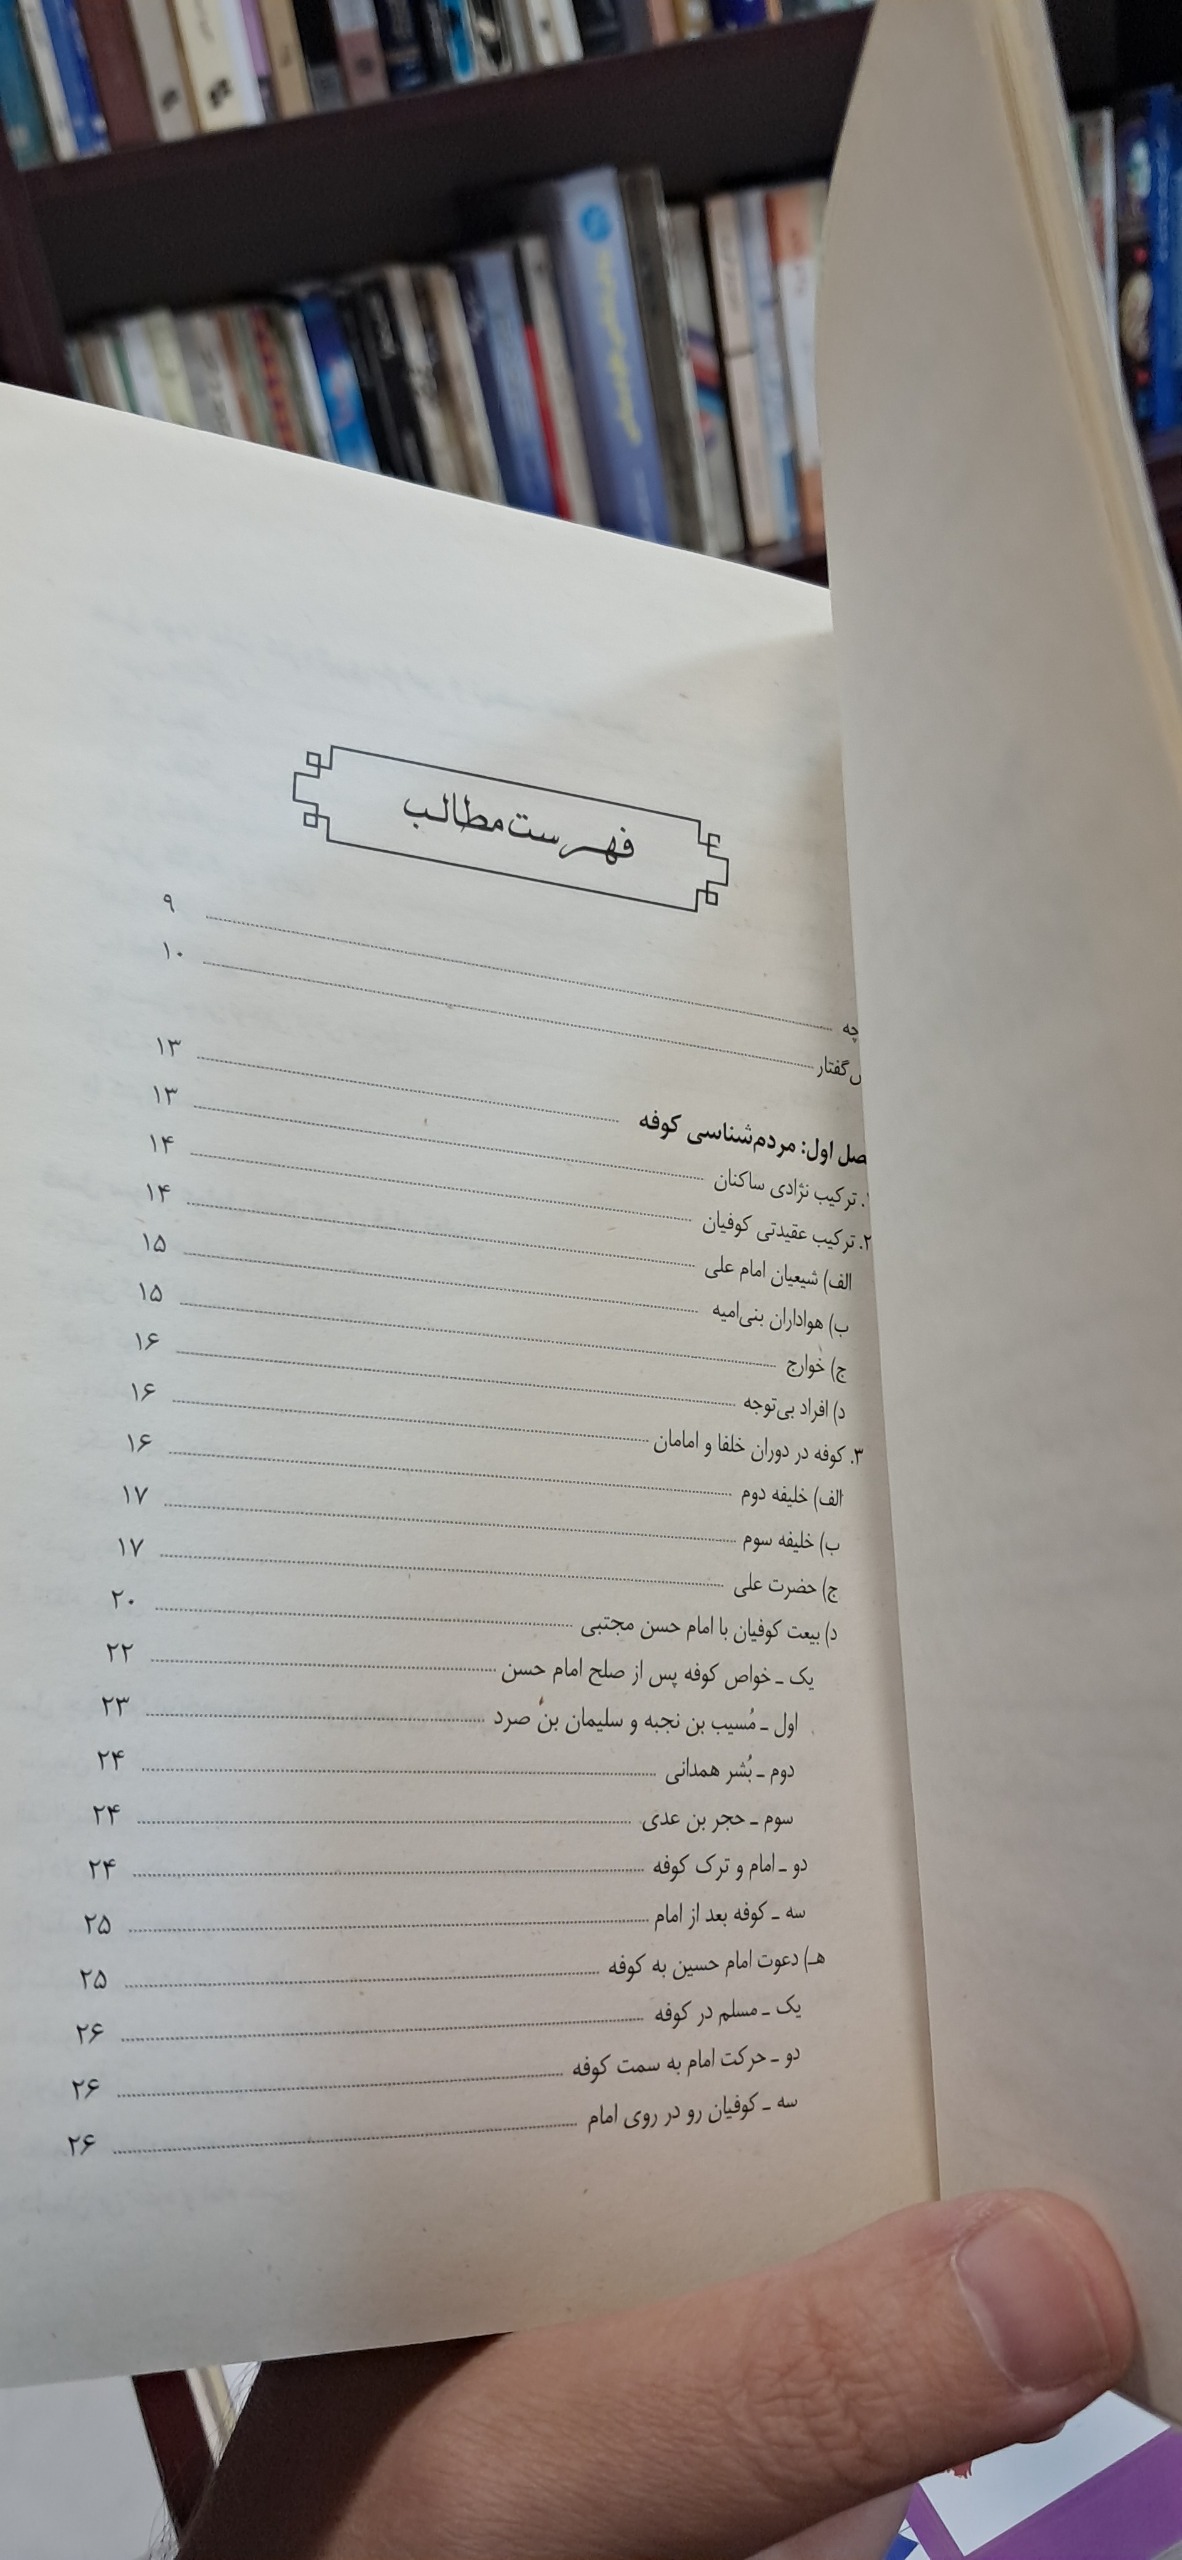 فهرست مطالب
چه ........ ۹
ش‌گفتار ........ ۱۰
صل اول: مردم‌شناسی کوفه ........ ۱۳
۱. ترکیب نژادی ساکنان ........ ۱۳
۲. ترکیب عقیدتی کوفیان ........ ۱۴
الف) شیعیان امام علی ........ ۱۴
ب) هواداران بنی‌امیه ........ ۱۵
ج) خوارج ........ ۱۵
د) افراد بی‌توجه ........ ۱۶
۳. کوفه در دوران خلفا و امامان ........ ۱۶
الف) خلیفه دوم ........ ۱۶
ب) خلیفه سوم ........ ۱۷
ج) حضرت علی ........ ۱۷
د) بیعت کوفیان با امام حسن مجتبی ........ ۲۰
یک ـ خواص کوفه پس از صلح امام حسن ........ ۲۲
اول ـ مُسیب بن نجبه و سلیمان بن صرد ........ ۲۳
دوم ـ بُشر همدانی ........ ۲۴
سوم ـ حجر بن عدی ........ ۲۴
دو ـ امام و ترک کوفه ........ ۲۴
سه ـ کوفه بعد از امام ........ ۲۵
هـ) دعوت امام حسین به کوفه ........ ۲۵
یک ـ مسلم در کوفه ........ ۲۶
دو ـ حرکت امام به سمت کوفه ........ ۲۶
سه ـ کوفیان رو در روی امام ........ ۲۶